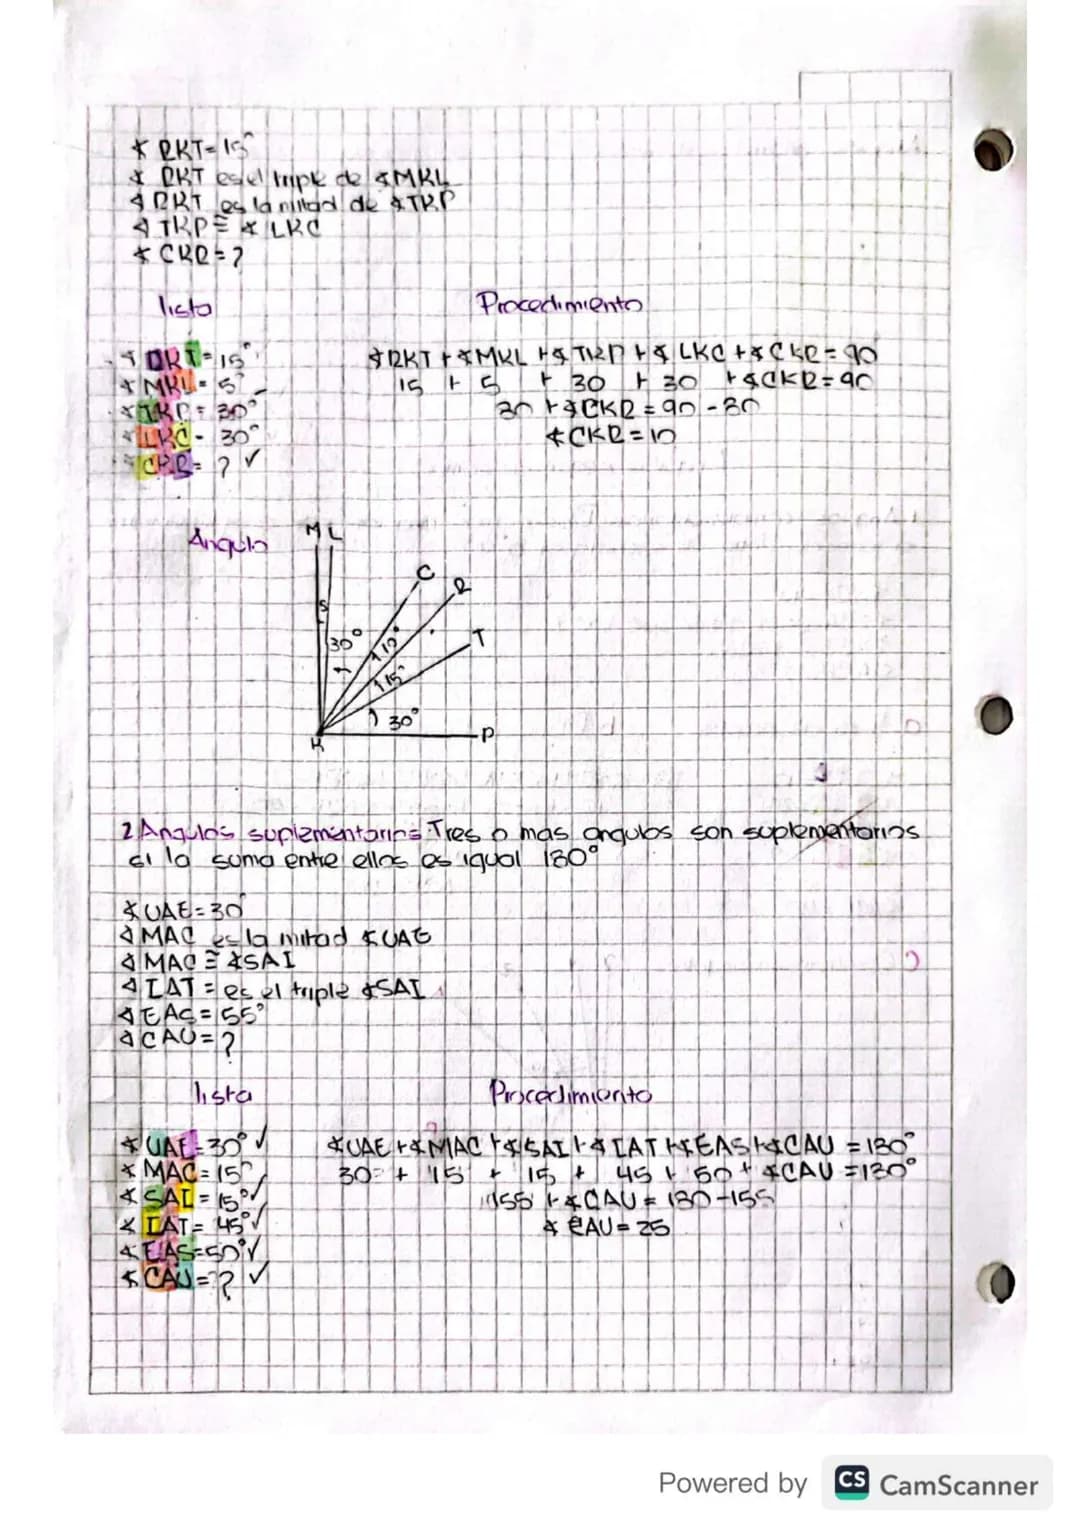 ∡ RKT=15°
∡ RKT es el triple de ∡MKL
∡ RKT es la mitad de ∡TKP
∡ TKP≅ ∡ LKC
∡ CKR=?
lista Procedimiento
∡ RKT=15° ∡RKT+∡MKL+∡TKP+∡ LKC+∡CKR=90
∡ MKL=5° 15 + 5 + 30 + 30 +∡CKR=90
∡TKP=30° 80+∡CKR=90-80
∡LKC=30° ∡CKR=10
∡CKR=? ✓
Angulo M L
C
R
5
30° 10°
T
15°
30°
K P
2 Angulos suplementarios: Tres o mas angulos son suplementarios
si la suma entre ellos es igual 180°
∡UAE=30°
∡MAC es la mitad ∡UAE
∡MAC≅∡SAI
∡IAT=es el triple ∡SAI
∡EAS=55°
∡CAU=?
lista Procedimiento
∡UAE=30°✓ ∡UAE+∡MAC+∡SAI+∡IAT+∡EAS+∡CAU=180°
∡MAC=15° 30+ 15 + 15 + 45+ 50+ ∡CAU=180°
∡SAI=15°✓ 155+∡CAU=180-155
∡IAT=45°✓ ∡CAU=25
∡EAS=50°✓
∡CAU=? ✓
Powered by CS CamScanner